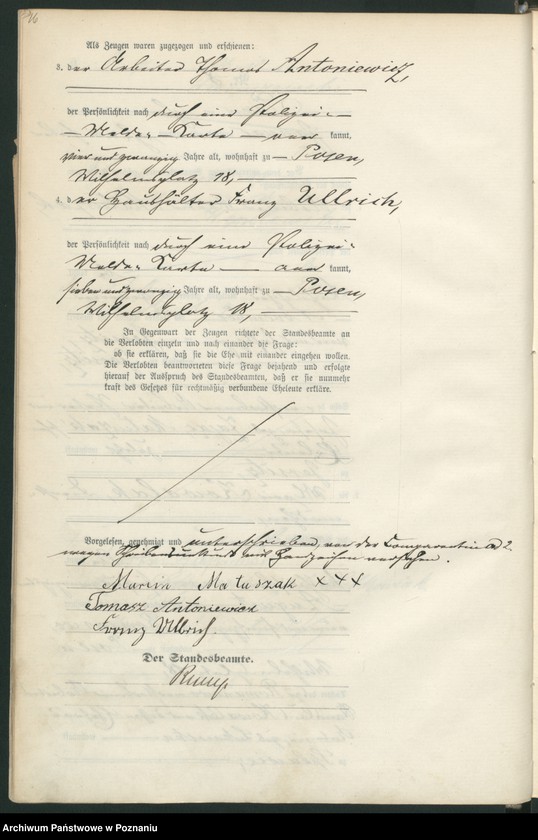 Als Zeugen waren zugezogen und erschienen:
3. der Arbeiter Thomas Antoniewicz,
der Persönlichkeit nach durch eine Polizei-
Melde-Karte — aner kannt,
vierundzwanzig Jahre alt, wohnhaft zu Posen,
Wilhelmsplatz 18,
4. der Haushälter Franz Ullrich,
der Persönlichkeit nach durch eine Polizei-
Melde-Karte — aner kannt,
siebenundzwanzig Jahre alt, wohnhaft zu Posen,
Wilhelmsplatz 18,
In Gegenwart der Zeugen richtete der Standesbeamte an
die Verlobten einzeln und nach einander die Frage:
ob sie erklären, daß sie die Ehe mit einander eingehen wollen.
Die Verlobten beantworteten diese Frage bejahend und erfolgte
hierauf der Ausspruch des Standesbeamten, daß er sie nunmehr
kraft des Gesetzes für rechtmäßig verbundene Eheleute erkläre.
Vorgelesen, genehmigt und unterschrieben, von der Comparentin ad 2.
wegen Schreibensunkunde mit Handzeichen versehen.
Marcin Matuszak +++
Tomasz Antoniewicz
Franz Ullrich.
Der Standesbeamte.
Archiwum Państwowe w Poznaniu